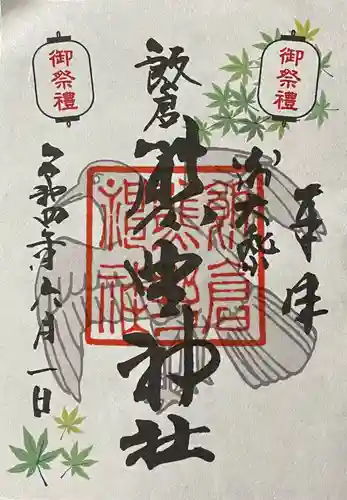 御祭禮
御祭禮
奉拝
大祭
飯倉
熊野神社
飯倉
熊野
神社
令和四年六月一日